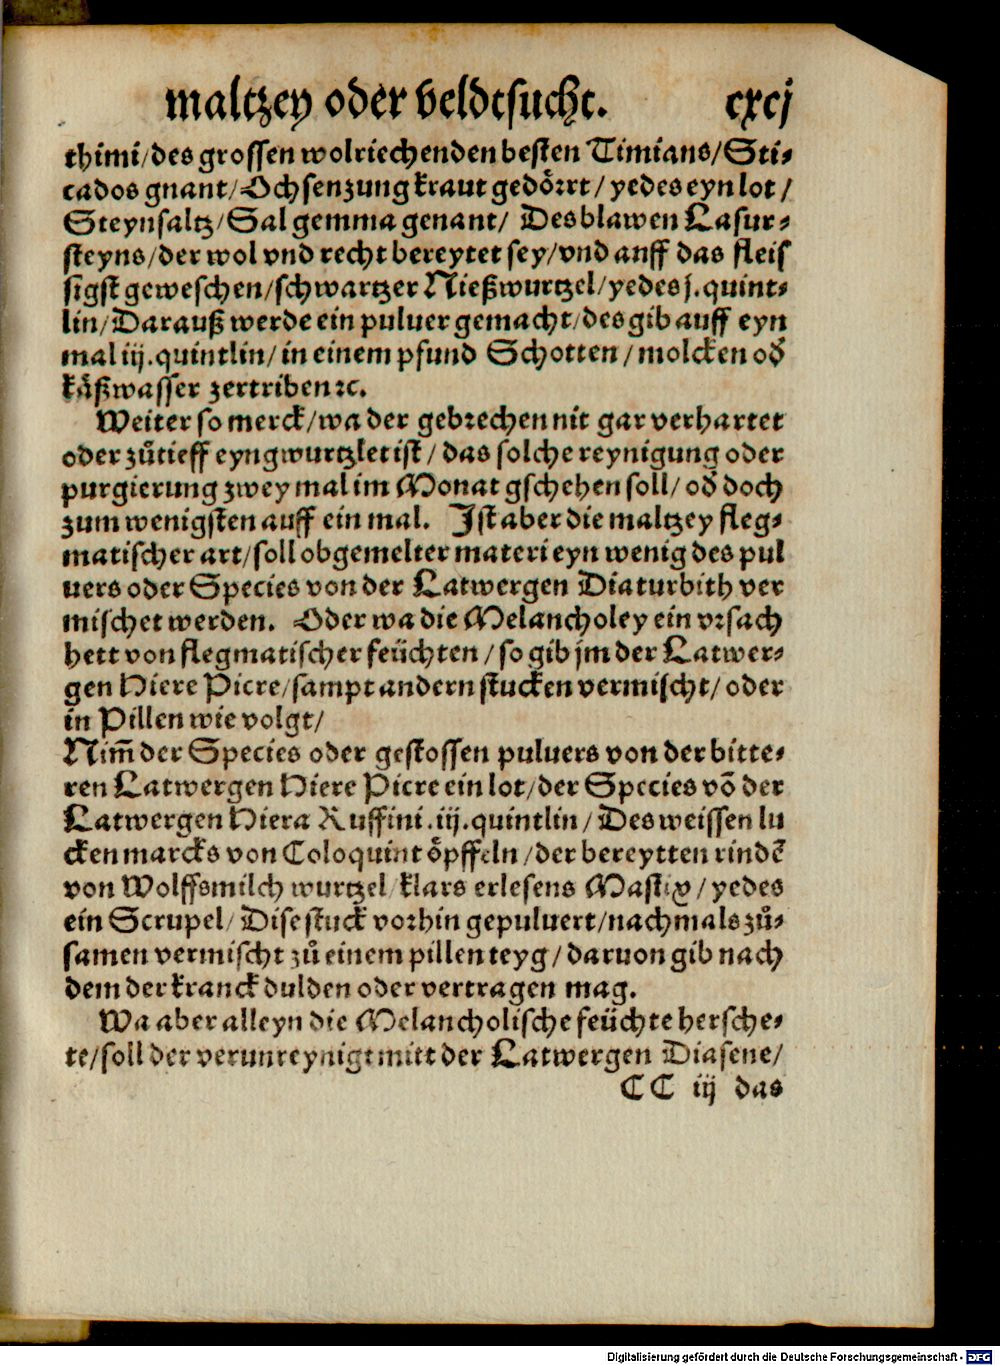 maltzey oder veldtsucht. cxcj
thimi/des grossen wolriechenden besten Timians/Sti⸗
cados gnant/Ochsenzung kraut gedoͤꝛrt/yedes eyn lot/
Steynsaltz/Sal gemma genant/ Des blawen Lasur⸗
steyns/der wol vnd recht bereytet sey/vnd anff das fleis
sigst geweschen/schwartzer Nießwurtzel/yedes j.quint⸗
lin/Darauß werde ein puluer gemacht/des gib auff eyn
mal iij.quintlin/in einem pfund Schotten/molcken od̕
kaͤßwasser zertriben ꝛc.
Weiter so merck/wa der gebꝛechen nit gar verhartet
oder zuͦtieff eyngwurtzlet ist/das solche reynigung oder
purgierung zwey mal im Monat gschehen soll/od̕ doch
zum wenigsten auff ein mal. Ist aber die maltzey fleg⸗
matischer art/soll obgemelter materi eyn wenig des pul
uers oder Species von der Latwergen Diaturbith ver
mischet werden. Oder wa die Melancholey ein vꝛsach
hett von flegmatischer feüchten/so gib jm der Latwer⸗
gen Hiere Picre/sampt andern stucken vermischt/oder
in Pillen wie volgt/
Nim̃ der Species oder gestossen puluers von der bitte⸗
ren Latwergen Hiere Picre ein lot/der Species võ der
Latwergen Hiera Ruffini.iij.quintlin/Des weissen lu
cken marcks von Coloquint oͤpffeln/der bereytten rindẽ
von Wolffsmilch wurtzel/klars erlesens Mastix/yedes
ein Scrupel/Dise stuck voꝛhin gepuluert/nachmals zuͦ⸗
samen vermischt zuͦ einem pillen teyg/daruon gib nach
dem der kranck dulden oder vertragen mag.
Wa aber alleyn die Melancholische feüchte hersche⸗
te/soll der verunreynigt mitt der Latwergen Diasene/
CC iij das
Digitalisierung gefördert durch die Deutsche Forschungsgemeinschaft - DFG